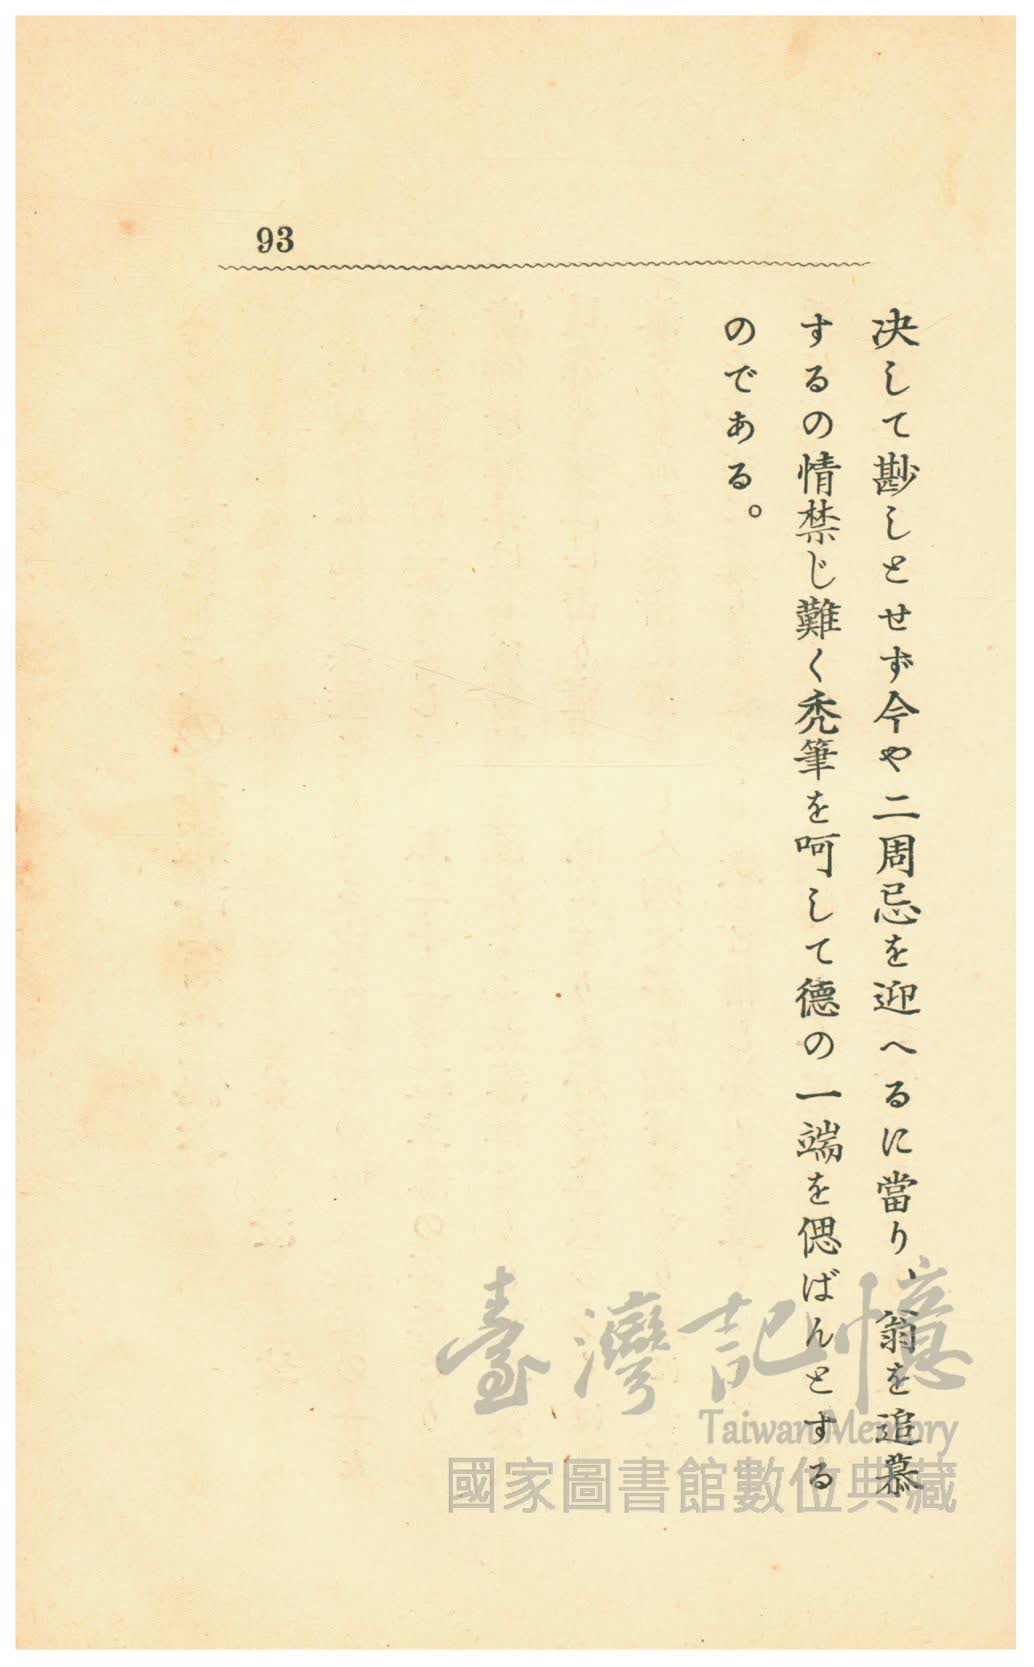 93
决して尠しとせず今や二周忌を迎へるに當り、翁を追慕
するの情禁じ難く禿筆を呵して德の一端を偲ばんとする
のである。
臺灣記憶
Taiwan Memory
國家圖書館數位典藏